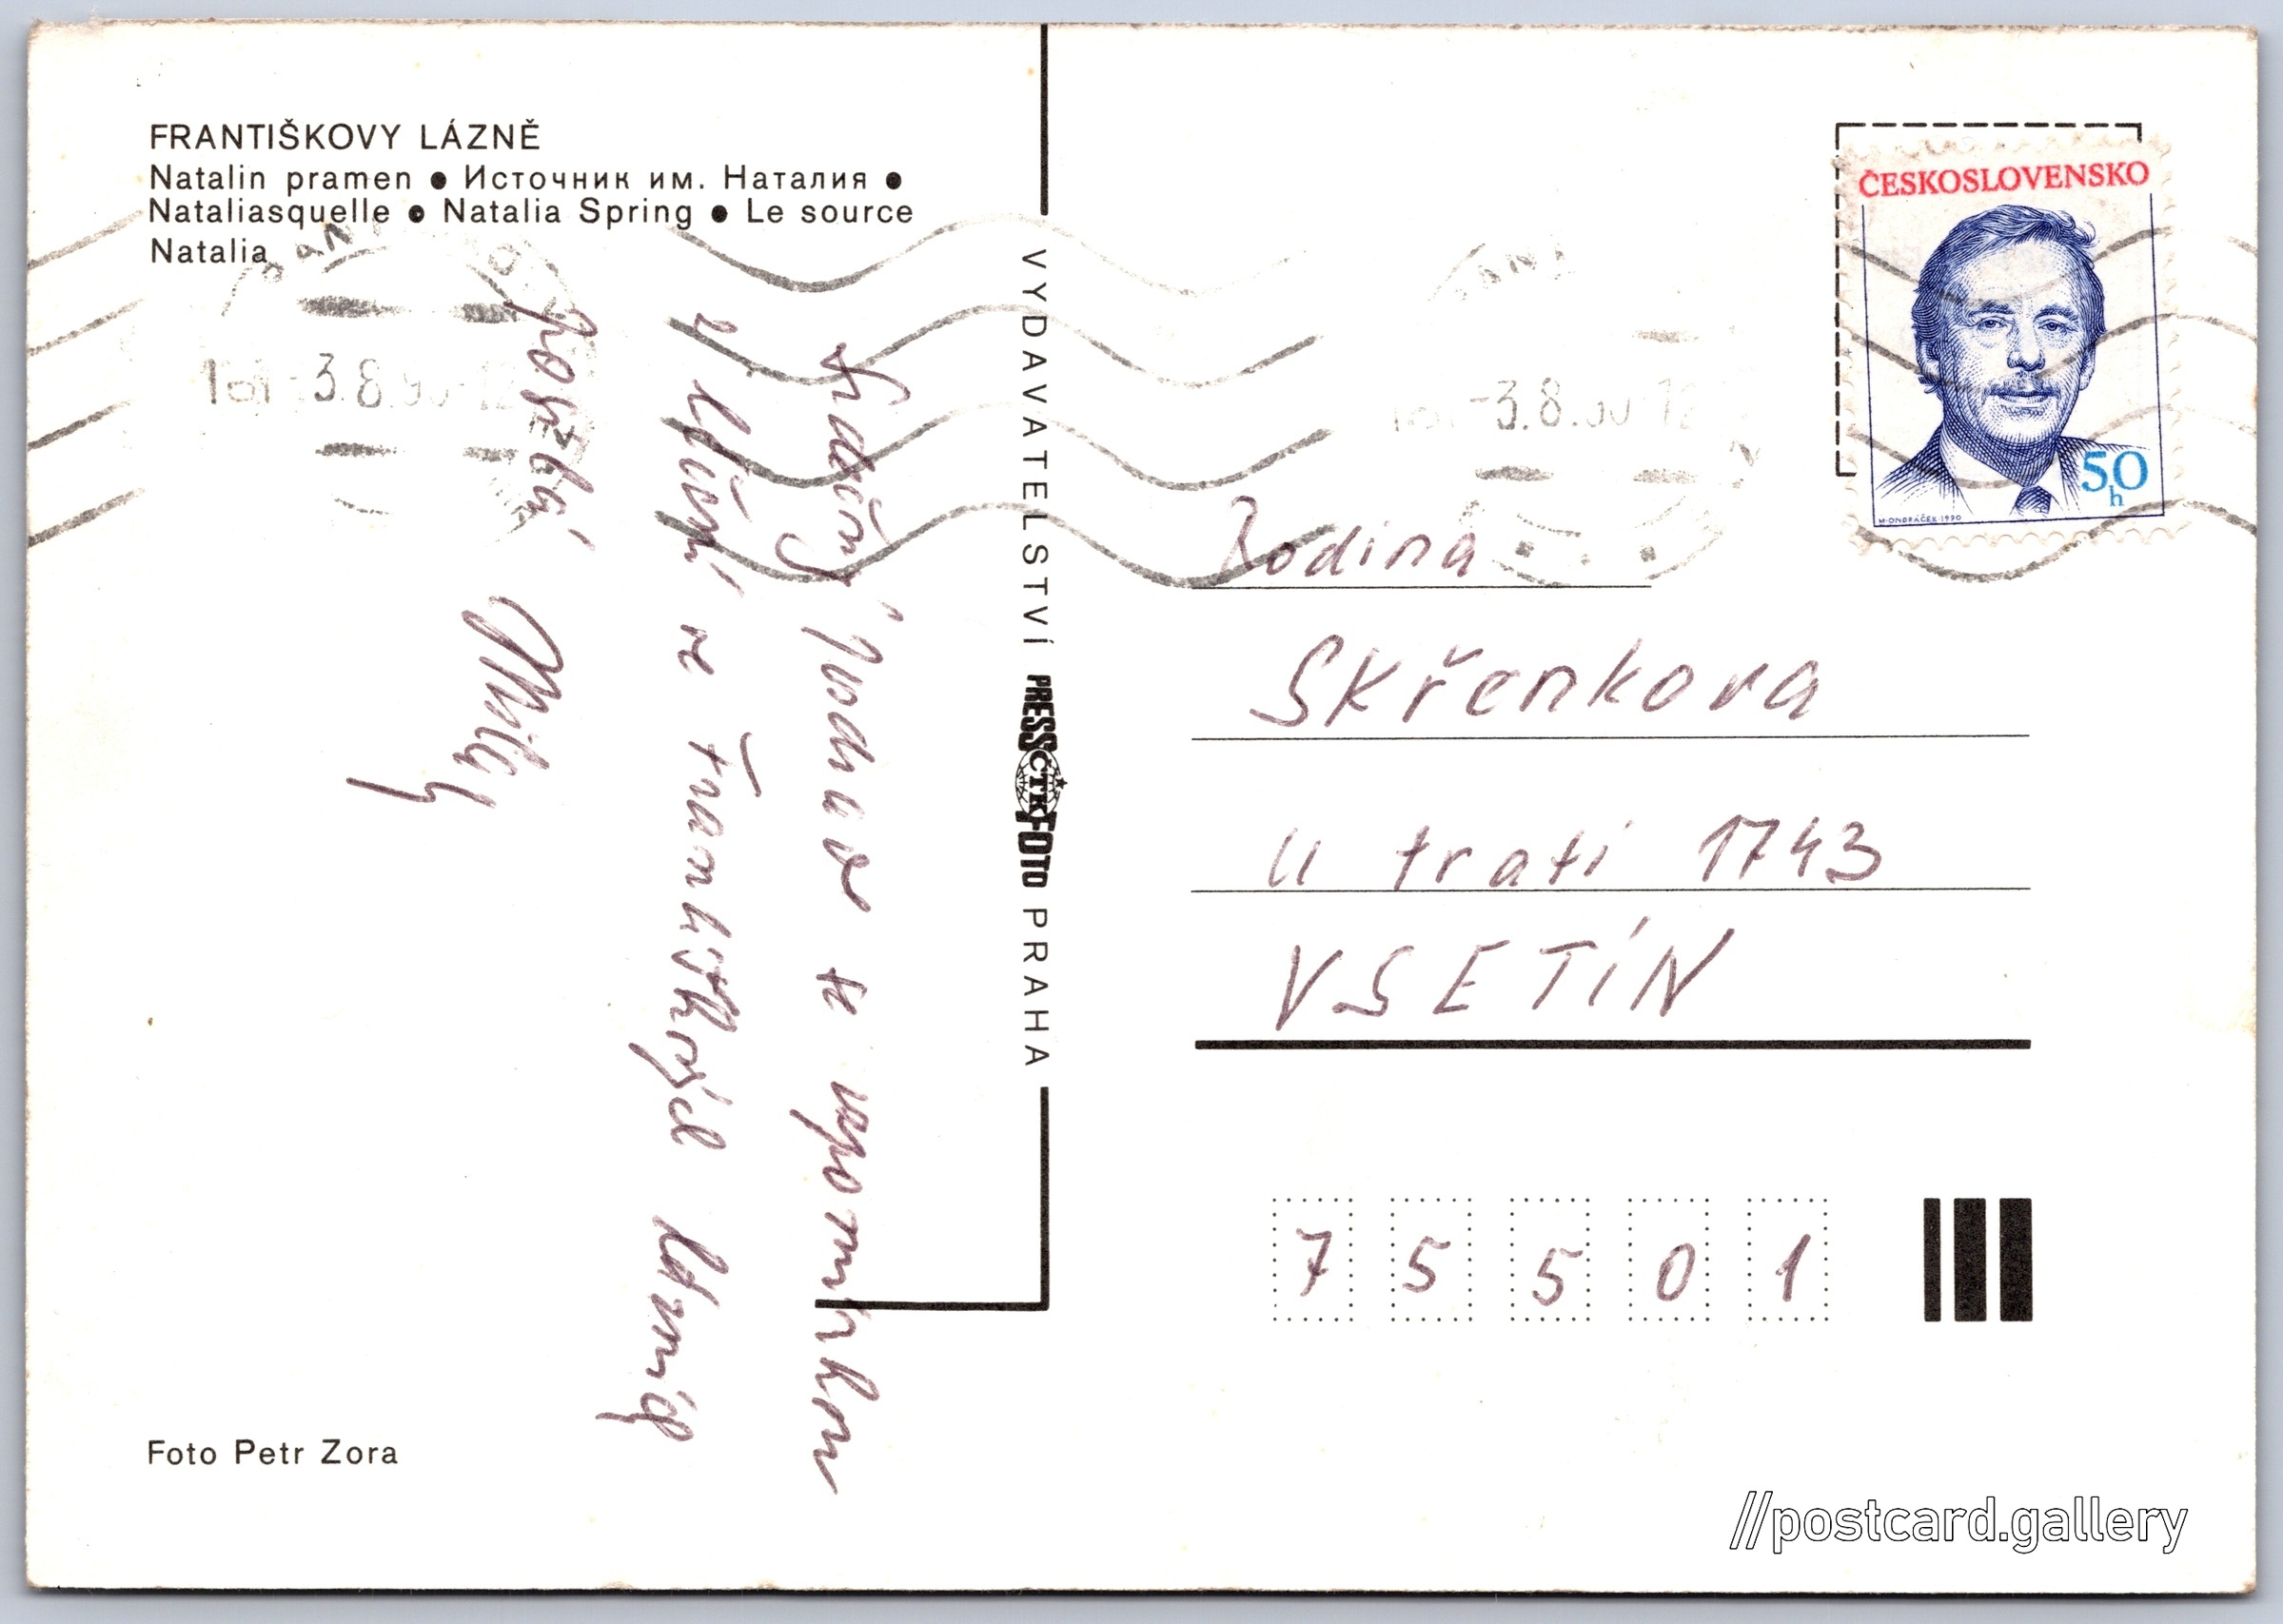 FRANTIŠKOVY LÁZNĚ
Natalin pramen ● Источник им. Наталия ●
Nataliasquelle ● Natalia Spring ● Le source
Natalia
Srdečný pozdrav a vzpomínkou
z léčení ve Františkových Lázních
posílá
VYDAVATELSTVÍ PRESSČTKFOTO PRAHA
ČESKOSLOVENSKO
50
h
M.ONDRÁČEK 1990
-3.8.90-12
-3.8.90-12
Rodina
Skřenkova
U trati 1743
VSETÍN
7 5 5 0 1
Foto Petr Zora
//postcard.gallery